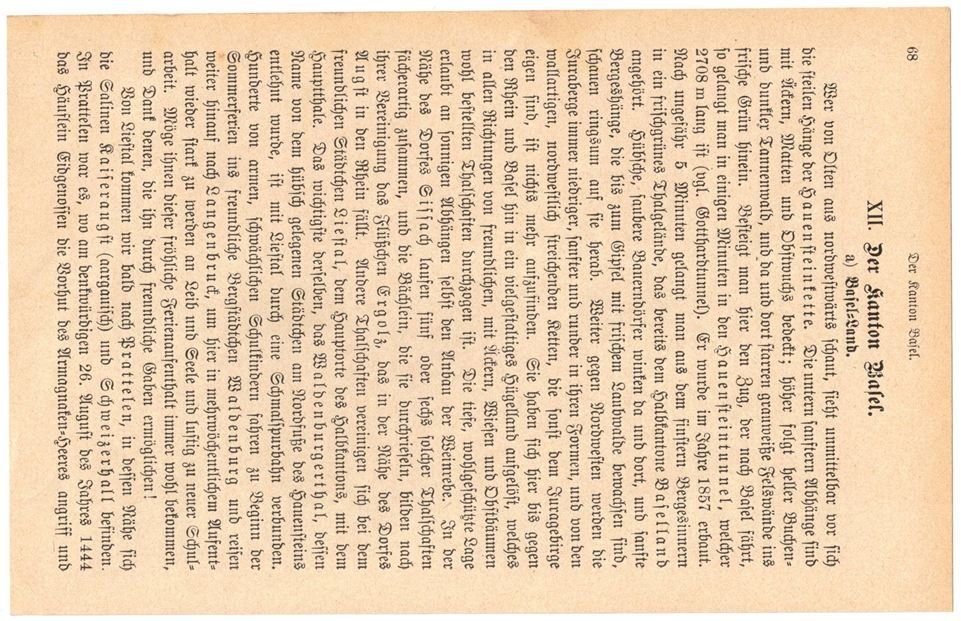 68
Der Kanton Basel.
XII. Der Kanton Basel.
a) Basel-Land.
Wer von Olten aus nordwestwärts schaut, sieht unmittelbar vor sich
die steilen Hänge der Hauensteinkette. Die untern sanftern Abhänge sind
mit Äckern, Matten und Obstwuchs bedeckt; höher folgt heller Buchen-
und dunkler Tannenwald, und da und dort starren grauweiße Felswände ins
frische Grün hinein. Besteigt man hier den Zug, der nach Basel fährt,
so gelangt man in einigen Minuten in den Hauensteintunnel, welcher
2708 m lang ist (vgl. Gotthardtunnel). Er wurde im Jahre 1857 erbaut.
Nach ungefähr 5 Minuten gelangt man aus dem finstern Bergesinnern
in ein frischgrünes Thalgelände, das bereits dem Halbkantone Baselland
angehört. Hübsche, saubere Bauerndörfer winken da und dort, und sanfte
Bergeshänge, die bis zum Gipfel mit frischem Laubwalde bewachsen sind,
schauen ringsum auf sie herab. Weiter gegen Nordwesten werden die
Juraberge immer niedriger, sanfter und runder in ihren Formen, und von den
wallartigen, nordwestlich streichenden Ketten, die sonst dem Juragebirge
eigen sind, ist nichts mehr aufzufinden. Sie haben sich hier bis gegen
den Rhein und Basel hin in ein vielgestaltiges Hügelland aufgelöst, welches
in allen Richtungen von freundlichen, mit Äckern, Wiesen und Obstbäumen
wohl bestellten Thalschaften durchzogen ist. Die tiefe, wohlgeschützte Lage
erlaubt an sonnigen Abhängen selbst den Anbau der Weinrebe. In der
Nähe des Dorfes Sissach laufen fünf oder sechs solcher Thalschaften
fächerartig zusammen, und die Bächlein, die sie durchrieseln, bilden nach
ihrer Vereinigung das Flüßchen Ergolz, das in der Nähe des Dorfes
Augst in den Rhein fällt. Andere Thalschaften vereinigen sich bei dem
freundlichen Städtchen Liestal, dem Hauptorte des Halbkantons, mit dem
Hauptthale. Das wichtigste derselben, das Waldenburgerthal, dessen
Name von dem hübsch gelegenen Städtchen am Nordfuße des Hauensteins
entlehnt wurde, ist mit Liestal durch eine Schmalspurbahn verbunden.
Hunderte von armen, schwächlichen Schulkindern fahren zu Beginn der
Sommerferien ins freundliche Bergstädtchen Waldenburg und reisen
weiter hinauf nach Langenbruck, um hier in mehrwöchentlichem Aufent-
halt wieder stark zu werden an Leib und Seele und lustig zu neuer Schul-
arbeit. Möge ihnen dieser fröhliche Ferienaufenthalt immer wohl bekommen,
und Dank denen, die ihn durch freundliche Gaben ermöglichen!
Von Liestal kommen wir bald nach Prattelen, in dessen Nähe sich
die Salinen Kaiseraugst (aargauisch) und Schweizerhall befinden.
In Prattelen war es, wo am denkwürdigen 26. August des Jahres 1444
das Häuflein Eidgenossen die Vorhut des Armagnaken-Heeres angriff und